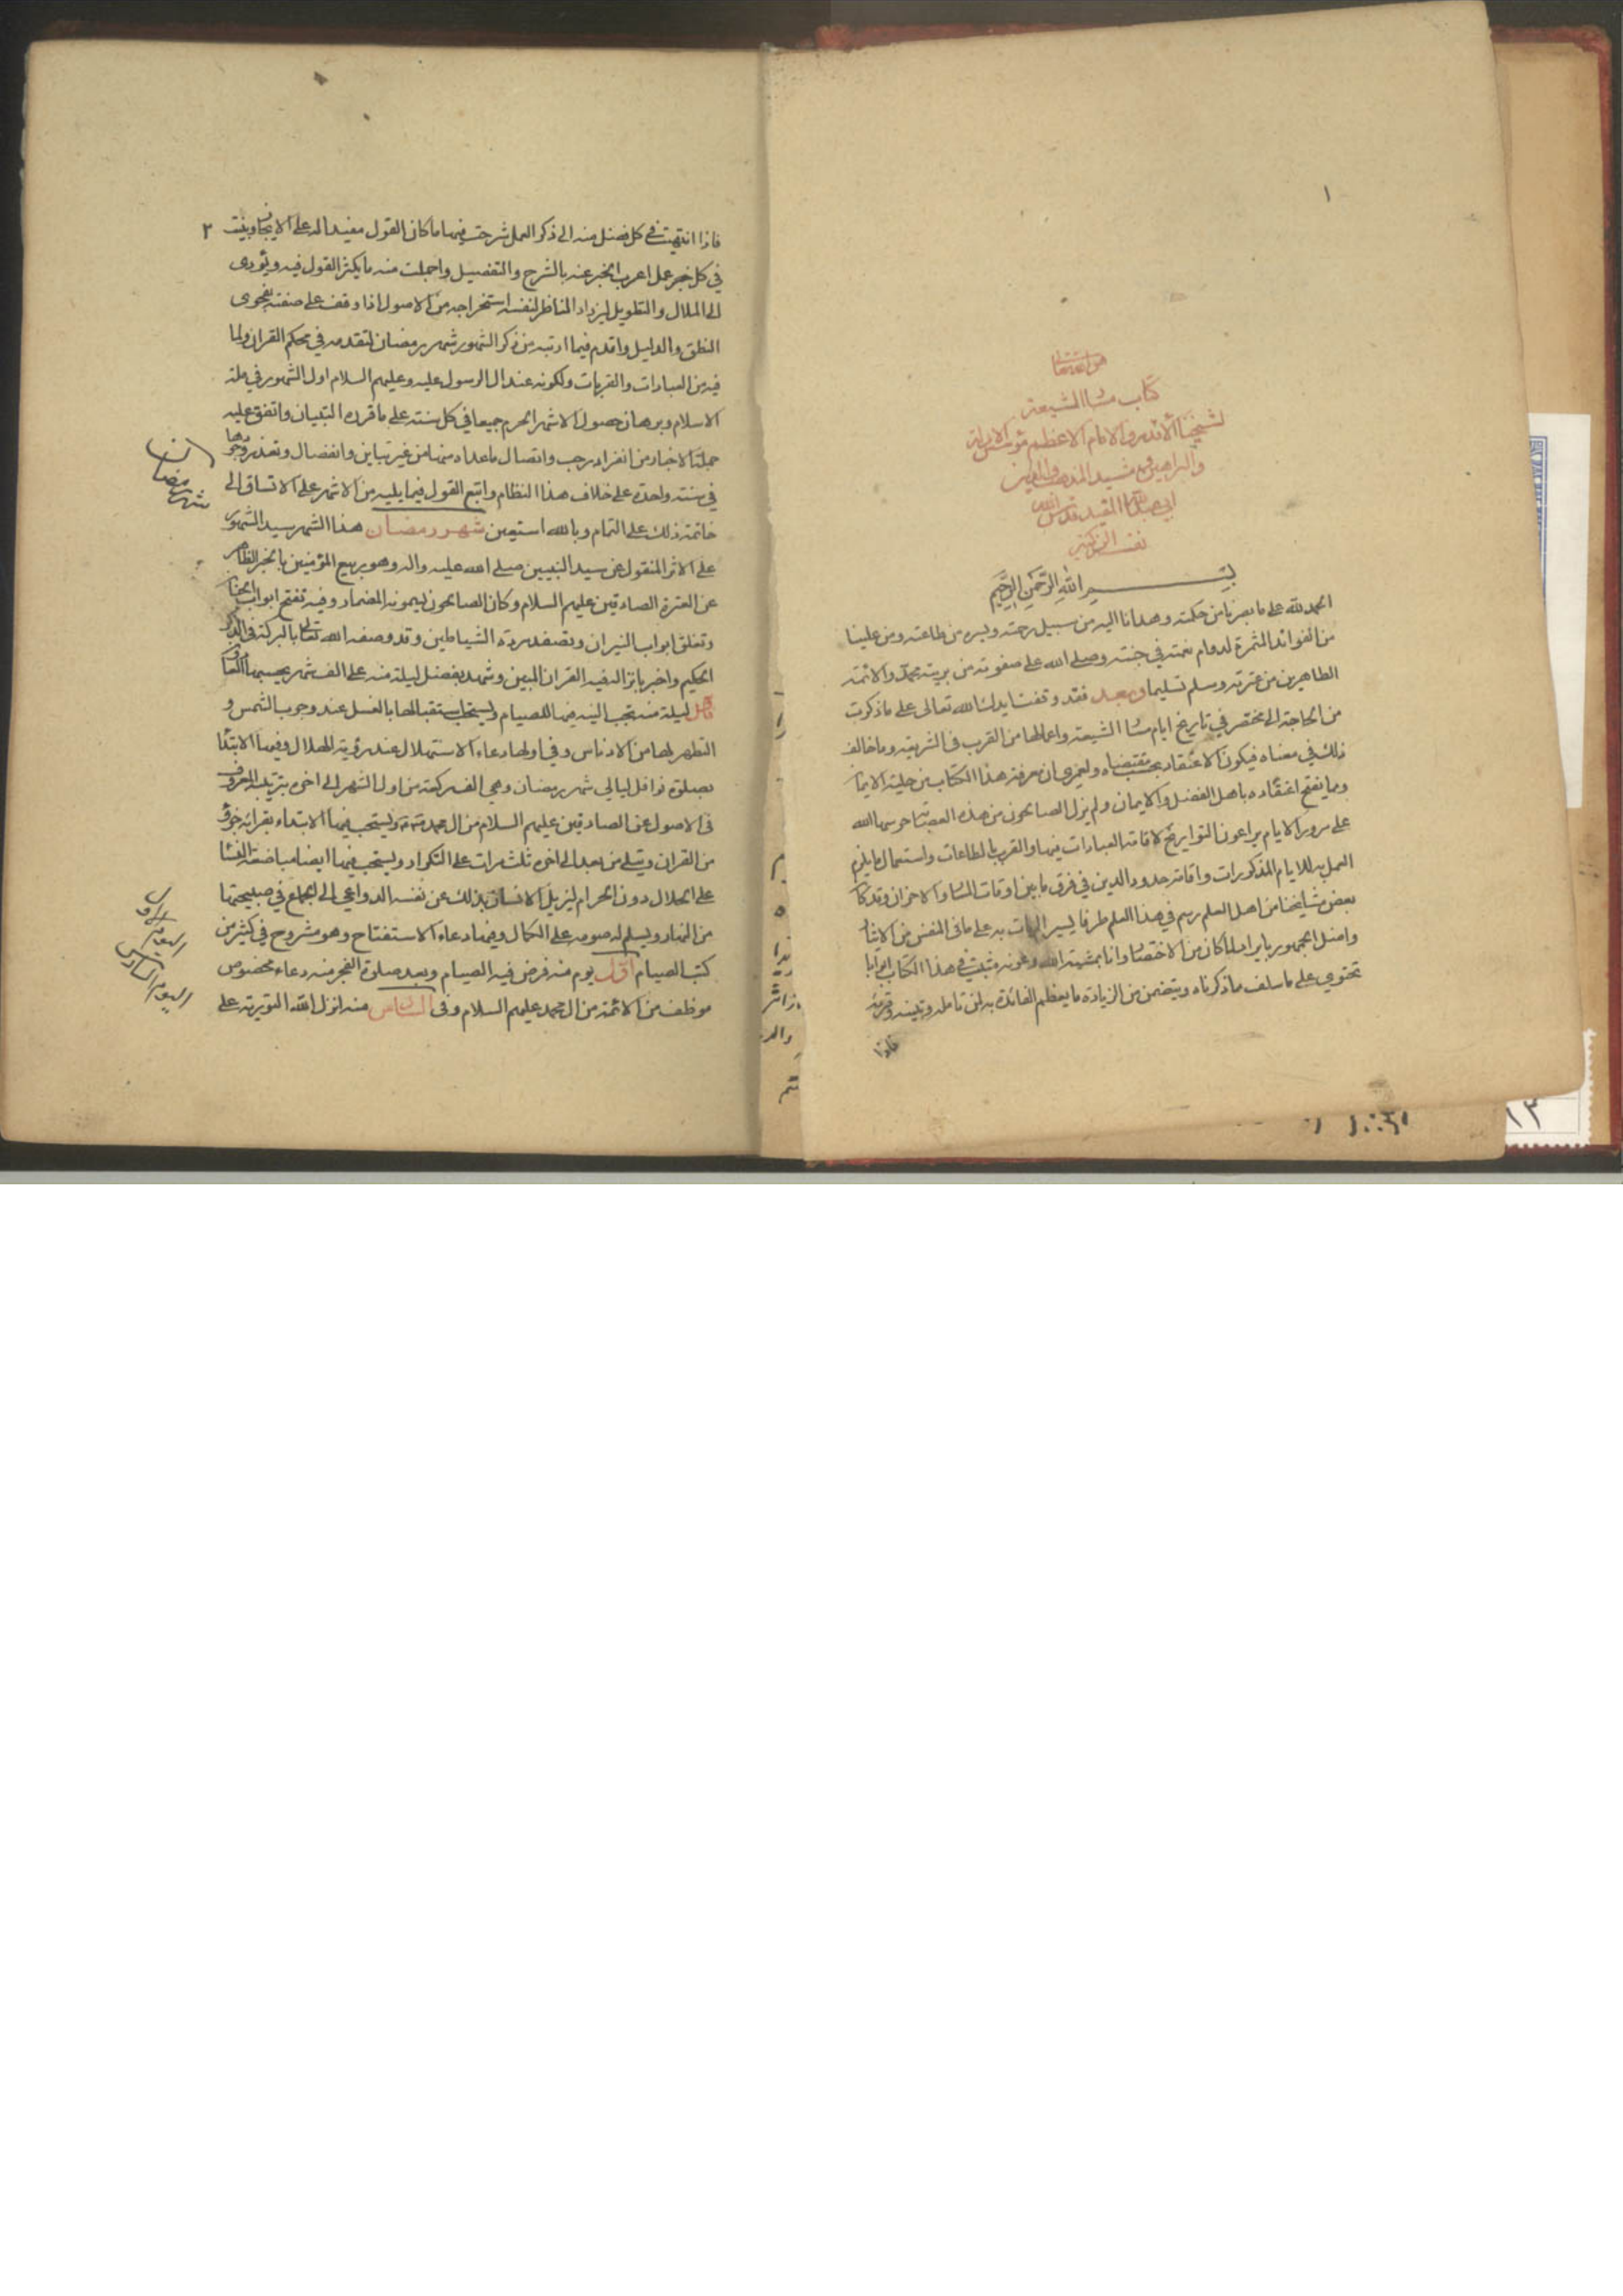 ١
كتاب مسار الشيعة
لشيخنا الاقدم والامام الاعظم
والبراهين مشيد المذهب والدين
ابي عبد الله المفيد قدس الله
نفسه الزكية
بسم الله الرحمن الرحيم
الحمد لله على ما بصرنا من حكمته وهدانا اليه من سبيل رحمته ويسره من طاعته ومن علينا
من الفوائد المثمرة لدوام نعمته في جنته وصلى الله على صفوته من بريته محمد والائمة
الطاهرين من عترته وسلم تسليما وبعد فقد وقفت ايدك الله تعالى على ما ذكرت
من الحاجة الى مختصر في تاريخ ايام مسار الشيعة واعمالها من القرب في الشريعة وما خالف
ذلك في معناه فيكون الاعتقاد بحسب مقتضاه ولعمري ان معرفة هذا الكتاب من حلية الايمان
ومما يفتح اعتقاده باهل الفضل والايمان ولم يزل الصالحون من هذه العصابة حرسها الله
على مرور الايام يراعون التواريخ لاقامة العبادات فيها والقرب بالطاعات واستعمال ما يلزم
العمل به للايام المذكورات واقامة حدود الدين في فرق ما بين اوقات المسار والاحزان وقد كان
بعض مشايخنا من اهل العلم رسم في هذا العلم طرفا يسيرا لم يات به على ما في النفس من الايثار
واضل الجمهور بايراد لما كان من الاختصار وانا بمشية الله وعونه مثبت في هذا الكتاب ابوابا
تحتوي على ما سلف مما ذكرناه ويتضمن من الزيادة ما يعظم الفائدة به لمن تامله وتبينه وقراه
فاذا
٢
فاذا انتهيت في كل فصل منه الى ذكر العمل شرحت فيها ما كان القول مفيدا له على الايجاز وبينت
في كل خبر عمل اعرب الخبر عنه بالشرح والتفصيل واجملت منه ما يكثر القول فيه ويؤدى
الى الملال والتطويل ليزداد الناظر لنفسه استخراجه من الاصول اذا وقف على صفته بفحوى
النطق والدليل واقدم فيما ارتبه من ذكر الشهور شهر رمضان لتقدمه في محكم القران ولما
فيه من العبادات والقربات ولكونه عند ال الرسول عليه وعليهم السلام اول الشهور في ملة
الاسلام وبرهان حصول الاشهر الحرم جميعا في كل سنة على ما قرره التبيان واتفق عليه
حملة الاخبار من انفراد رجب واتصال ما عداه منها من غير تباين وانفصال وتعذر وجودها
في سنة واحدة على خلاف هذا النظام واتبع القول فيما يليه من الاشهر على الاتساق الى
خاتمة ذلك على التمام وبالله استعين شهر رمضان هذا الشهر سيد الشهور
على الاثر المنقول عن سيد النبيين صلى الله عليه واله وهو ربيع المؤمنين بالخبر الظاهر
عن العترة الصادقين عليهم السلام وكان الصالحون يسمونه المضمار وفيه تفتح ابواب الجنان
وتغلق ابواب النيران وتصفد مردة الشياطين وقد وصفه الله تعالى بالبركة في الذكر
الحكيم واخبر بانزاله فيه القران المبين وشهد بفضل ليلة منه على الف شهر يحسبها العادون
فاول ليلة منه تجب النية فيها للصيام ويستحب استقبالها بالغسل عند وجوب الشمس و
التطهر لها من الادناس وفي اولها دعاء الاستهلال عند رؤية الهلال وفيها الابتداء
بصلوة نوافل ليالي شهر رمضان وهي الف ركعة من اول الشهر الى اخره بترتيب المعروف
في الاصول عن الصادقين عليهم السلام من ال محمد ويستحب فيها الابتداء بقرائة جزؤ
من القران ويتلى من بعد الى اخره ثلث مرات على التكرار ويستحب فيها ايضا مباضعة النساء
على الحلال دون الحرام ليزيل الانسان بذلك عن نفسه الدواعي الى الجماع في صبيحتها
من النهار ويسلم له صومه على الكمال وفيها دعاء الاستفتاح وهو مشروح في كثير من
كتب الصيام اول يوم منه فرض فيه الصيام وبعد صلوة الفجر منه دعاء مخصوص
موظف من الائمة من ال محمد عليهم السلام وفى السادس منه انزل الله التورية على
شهر رمضان
اليوم الاول
اليوم السادس